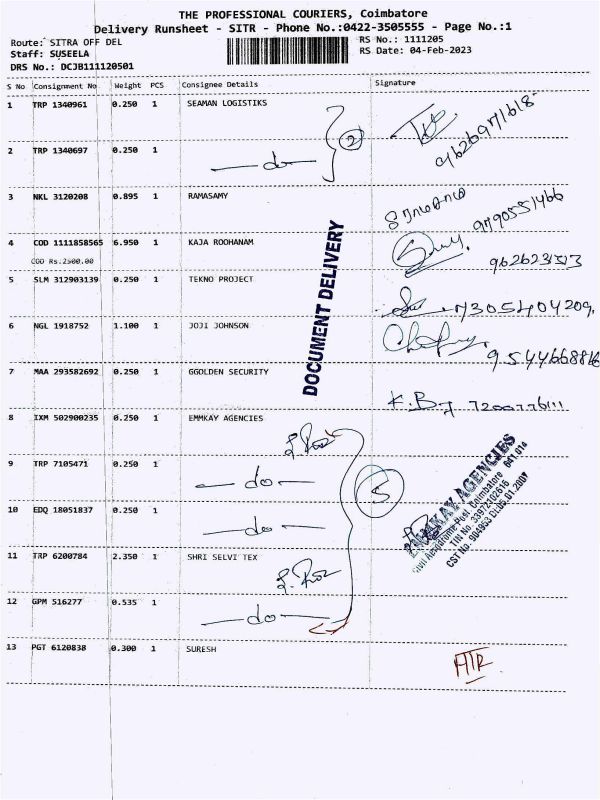 THE PROFESSIONAL COURIERS, Coimbatore
Delivery Runsheet - SITR - Phone No.:0422-3505555 - Page No.:1
Route: SITRA OFF DEL
RS No.: 1111205
Staff: SUSEELA
RS Date: 04-Feb-2023
DRS No.: DCJB111120501
S No Consignment No Weight PCS Consignee Details Signature
1 TRP 1340961 0.250 1 SEAMAN LOGISTIKS
9626971618
2 TRP 1340697 0.250 1
do
2
3 NKL 3120208 0.895 1 RAMASAMY
9790551466
4 COD 1111858565 6.950 1 KAJA ROOHANAM
COD Rs.2500.00
DOCUMENT DELIVERY
5 SLM 312903139 0.250 1 TEKNO PROJECT
7305404209
6 NGL 1918752 1.100 1 JOJI JOHNSON
9544668816
7 MAA 293582692 0.250 1 GGOLDEN SECURITY
K.B 7200776111
8 IXM 502900235 0.250 1 EMMKAY AGENCIES
9 TRP 7105471 0.250 1
do
5
10 EDQ 18051837 0.250 1
do
EMMKAY AGENCIES
Civil Aerodrome Post, Coimbatore 641 014
TIN No. 33972102616
CST No. 904953 Dt.05.01.2007
11 TRP 6200784 2.350 1 SHRI SELVI TEX
12 GPM 516277 0.535 1
do
13 PGT 6120838 0.300 1 SURESH